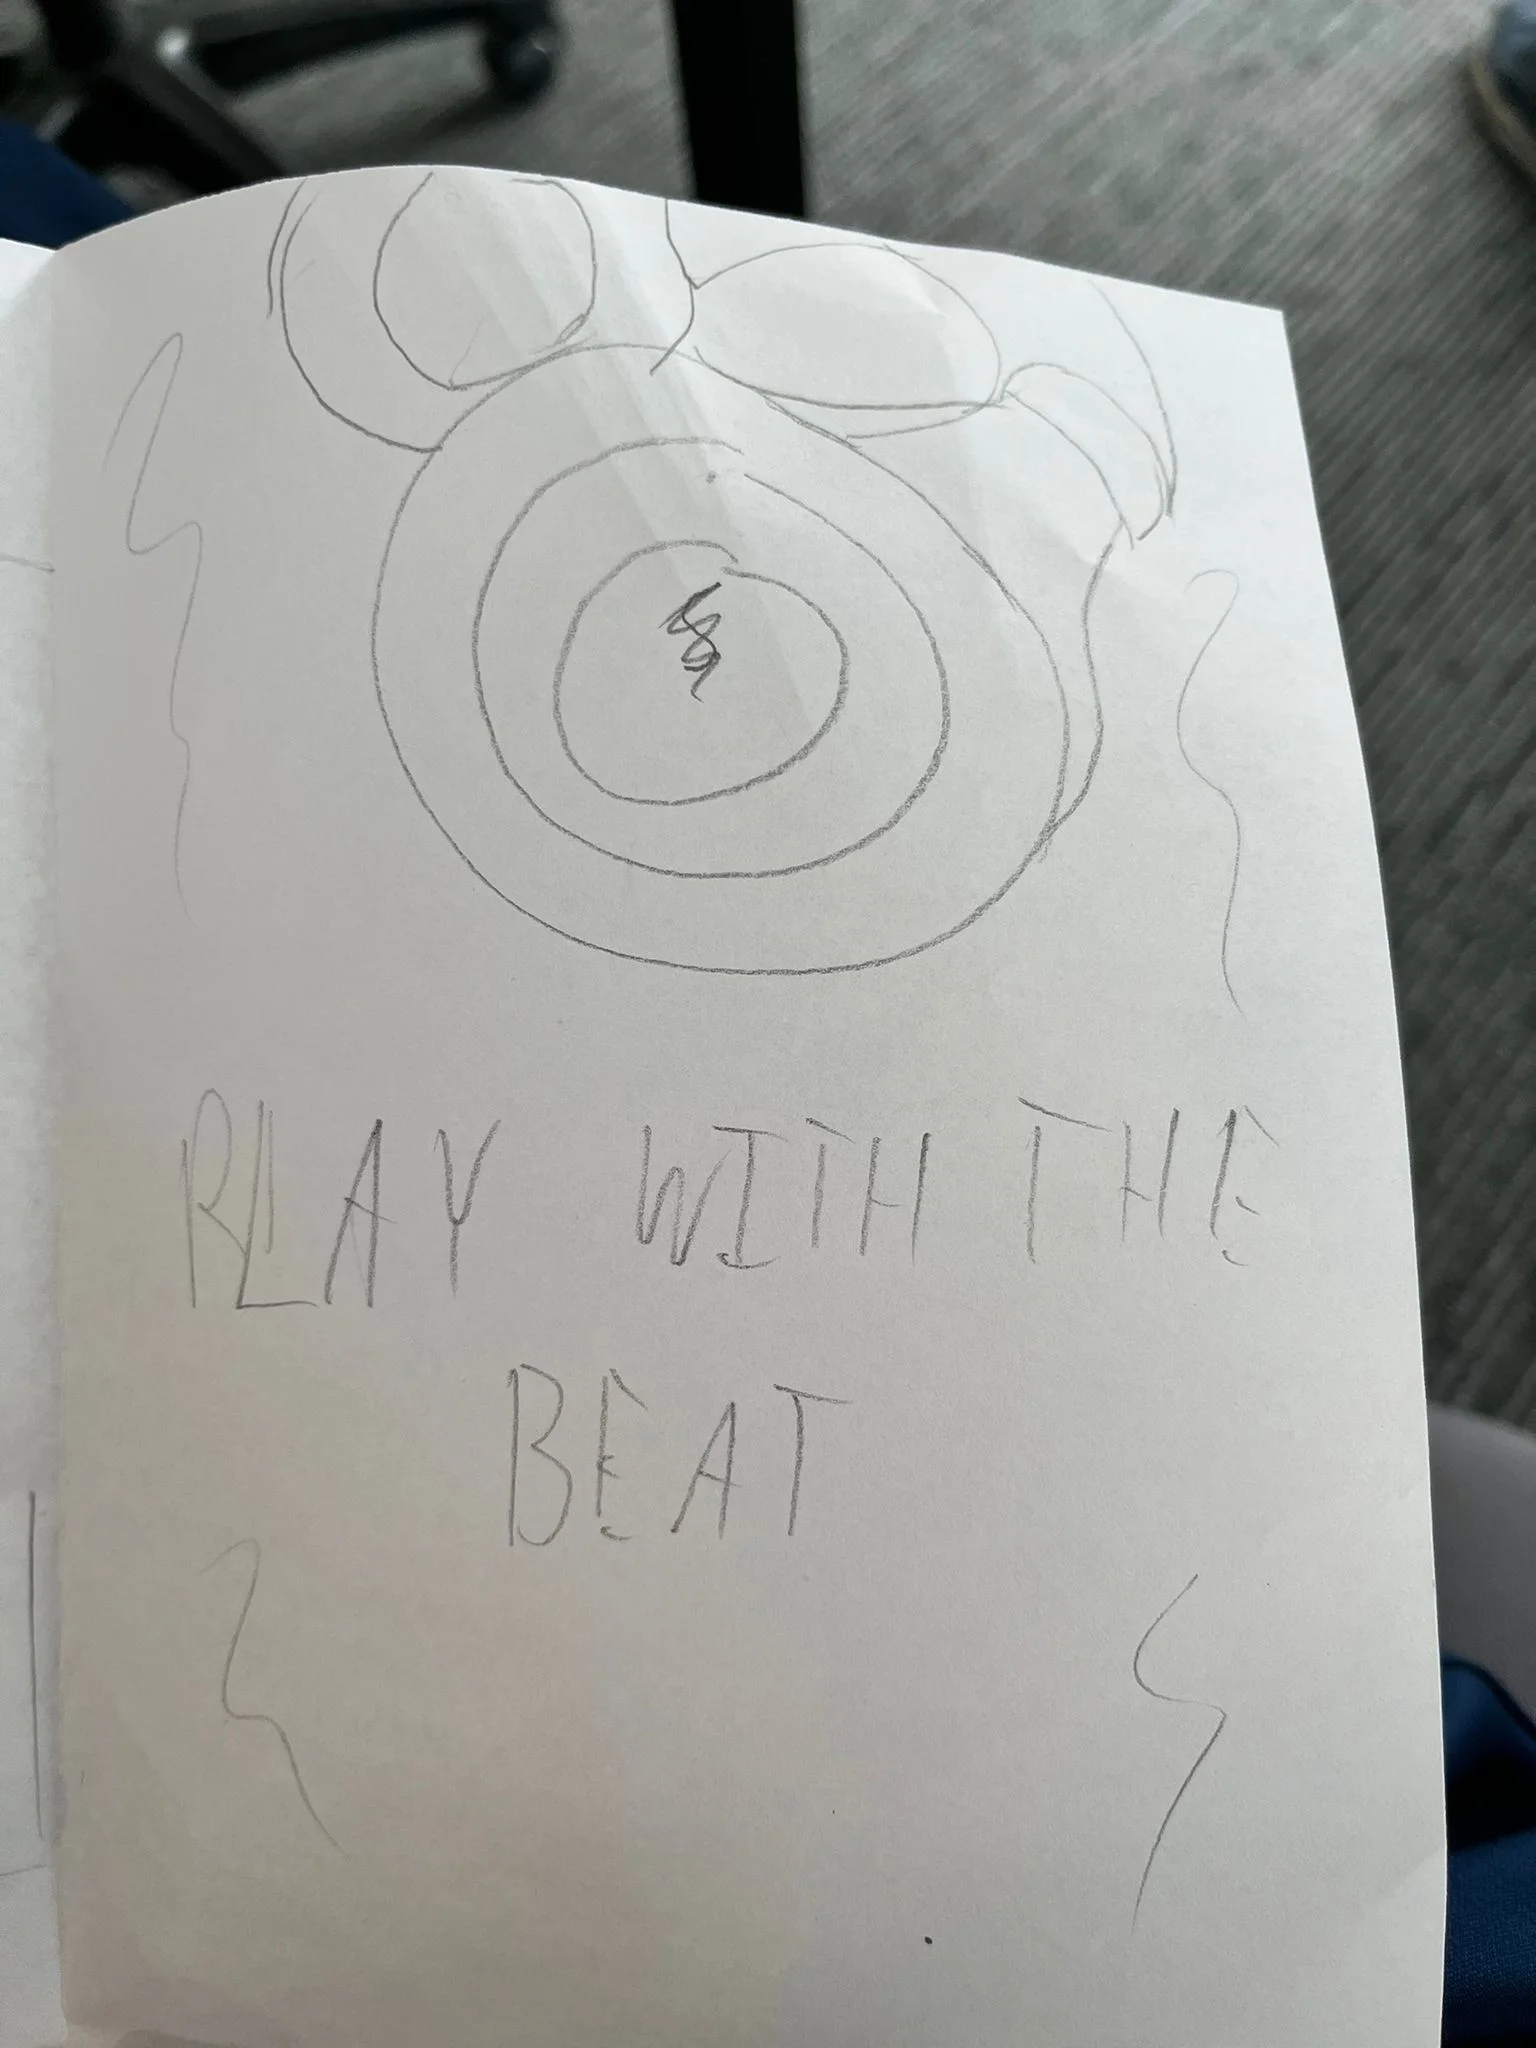 PLAY WITH THE
BEAT